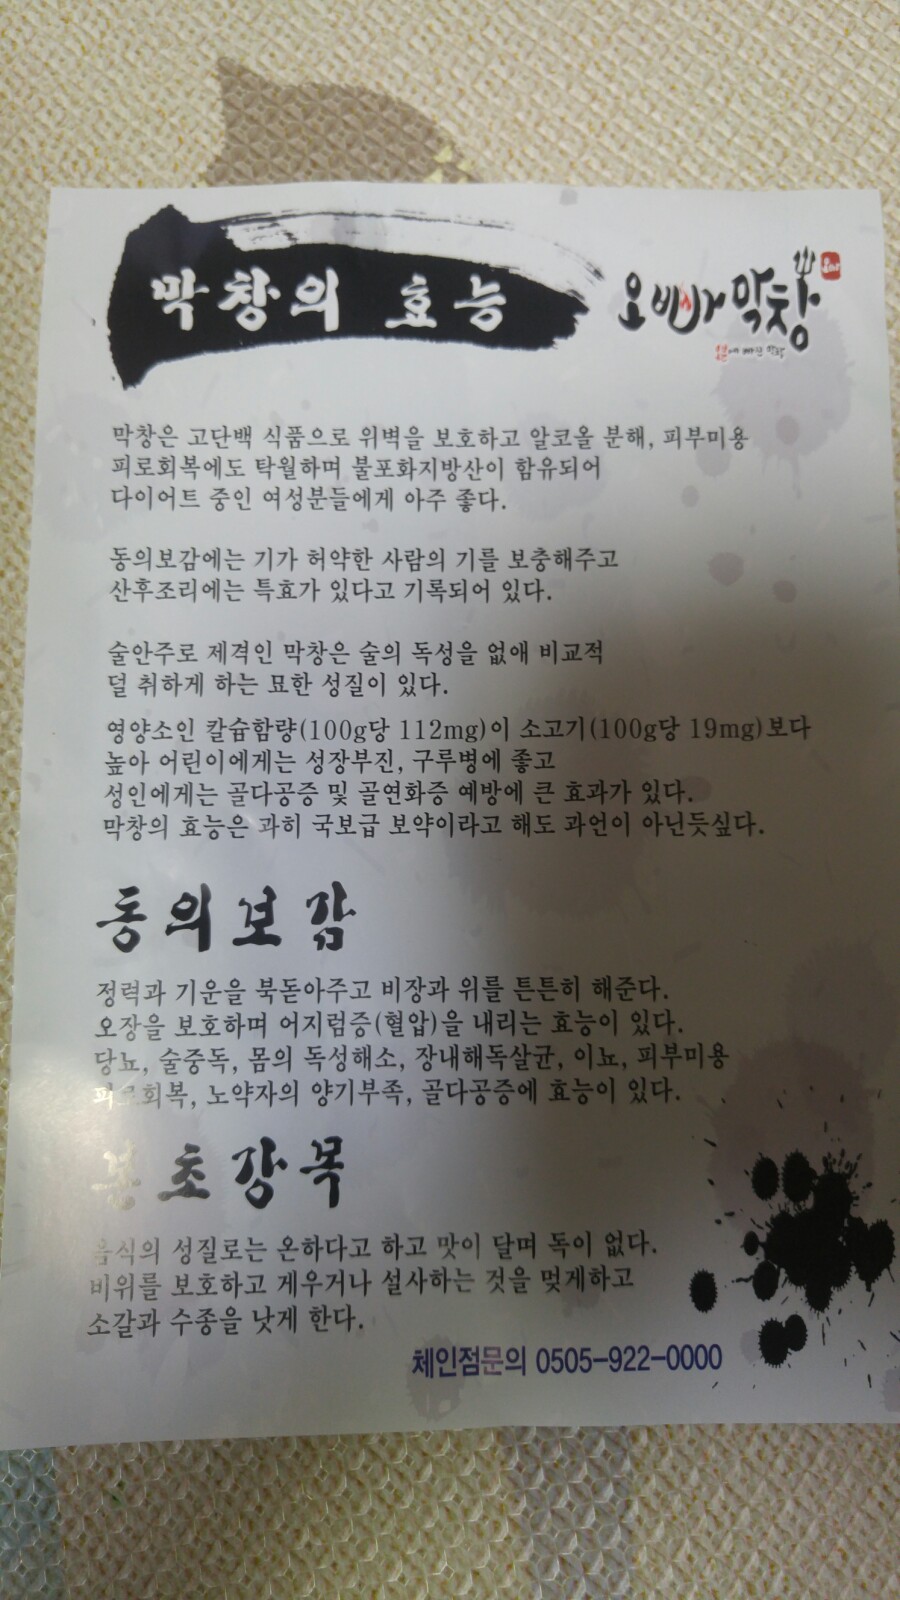 막창의 효능
오빠막창
막창은 고단백 식품으로 위벽을 보호하고 알코올 분해, 피부미용
피로회복에도 탁월하며 불포화지방산이 함유되어
다이어트 중인 여성분들에게 아주 좋다.
동의보감에는 기가 허약한 사람의 기를 보충해주고
산후조리에는 특효가 있다고 기록되어 있다.
술안주로 제격인 막창은 술의 독성을 없애 비교적
덜 취하게 하는 묘한 성질이 있다.
영양소인 칼슘함량(100g당 112mg)이 소고기(100g당 19mg)보다
높아 어린이에게는 성장부진, 구루병에 좋고
성인에게는 골다공증 및 골연화증 예방에 큰 효과가 있다.
막창의 효능은 과히 국보급 보약이라고 해도 과언이 아닌듯싶다.
동의보감
정력과 기운을 북돋아주고 비장과 위를 튼튼히 해준다.
오장을 보호하며 어지럼증(혈압)을 내리는 효능이 있다.
당뇨, 술중독, 몸의 독성해소, 장내해독살균, 이뇨, 피부미용
피로회복, 노약자의 양기부족, 골다공증에 효능이 있다.
본초강목
음식의 성질로는 온하다고 하고 맛이 달며 독이 없다.
비위를 보호하고 게우거나 설사하는 것을 멎게하고
소갈과 수종을 낫게 한다.
체인점문의 0505-922-0000